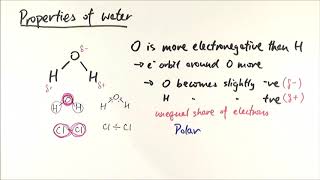 Properties of water
O δ-
H H
δ+ δ+
O is more electronegative than H
→ e⁻ orbit around O more
→ O becomes slightly -ve (δ-)
H " " +ve (δ+)
unequal share of electrons
Polar
H O H
H O H
Cl Cl
Cl ÷ Cl